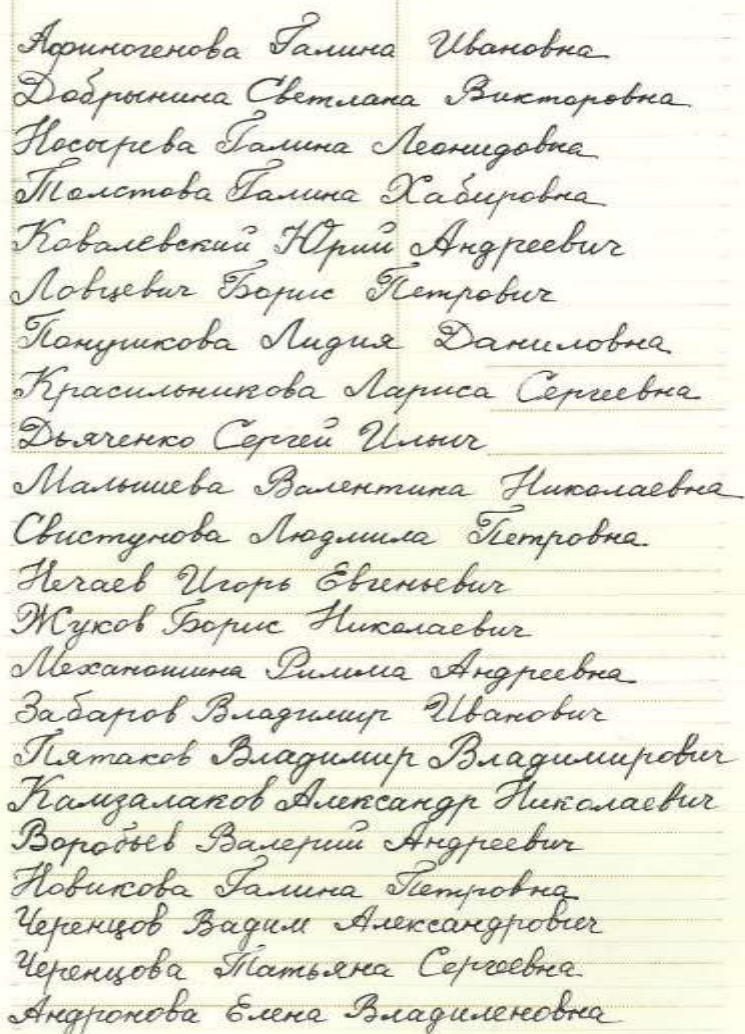 Афиногенова Галина Ивановна
Добрынина Светлана Викторовна
Носырева Галина Леонидовна
Толстова Галина Хабировна
Ковалевский Юрий Андреевич
Ловцевич Борис Петрович
Понушкова Лидия Даниловна
Красильникова Лариса Сергеевна
Дьяченко Сергей Ильич
Малышева Валентина Николаевна
Свистунова Людмила Петровна
Нечаев Игорь Евгеньевич
Жуков Борис Николаевич
Механошина Римма Андреевна
Забаров Владимир Иванович
Пятаков Владимир Владимирович
Камзалаков Александр Николаевич
Воробьев Валерий Андреевич
Новикова Галина Петровна
Черенцов Вадим Александрович
Черенцова Татьяна Сергеевна
Андронова Елена Владиленовна